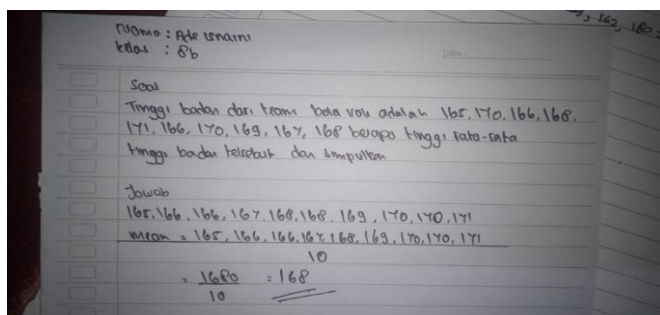 , 162, 180 :
Nama : Ade Isnaini
kelas : 8b
Soal
Tinggi badan dari team bola voli adalah 165, 170, 166, 168,
171, 166, 170, 169, 167, 168 berapa tinggi rata-rata
tinggi badan tersebut dan simpulkan
Jawab
165, 166, 166, 167, 168, 168, 169, 170, 170, 171
mean = 165, 166, 166, 167, 168, 169, 170, 170, 171
10
= 1680 = 168
10